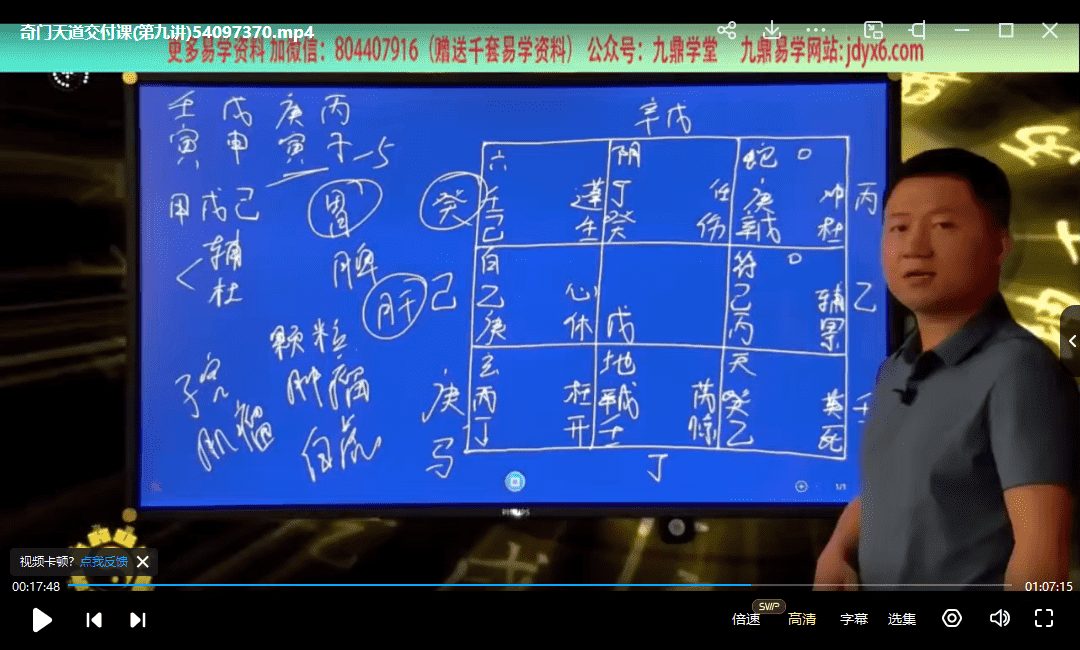 奇门天道交付课(第九讲)54097370.mp4
更多易学资料 加微信：804407916（赠送千套易学资料） 公众号：九鼎学堂 九鼎易学网站:jdyx6.com
壬 戊 庚 丙
寅 申 寅 子 -5
甲 戊 己
辅
杜
胃
脾
肝
颗粒
肿瘤
子宫
肌瘤
辛戊
癸
己
庚
马
六
壬 蓬
己 生
阴
丁 任
癸 伤
蛇
庚 冲
辛戊 杜
丙
白
乙 心
庚 休
戊
符
己 辅
丙 景
乙
玄
丙 柱
丁 开
地
辛戊 芮
壬 惊
天
癸 英
乙 死
丁
1/1
PHILIPS
视频卡顿? 点我反馈
00:17:48
01:07:15
倍速
SVIP
高清
字幕
选集